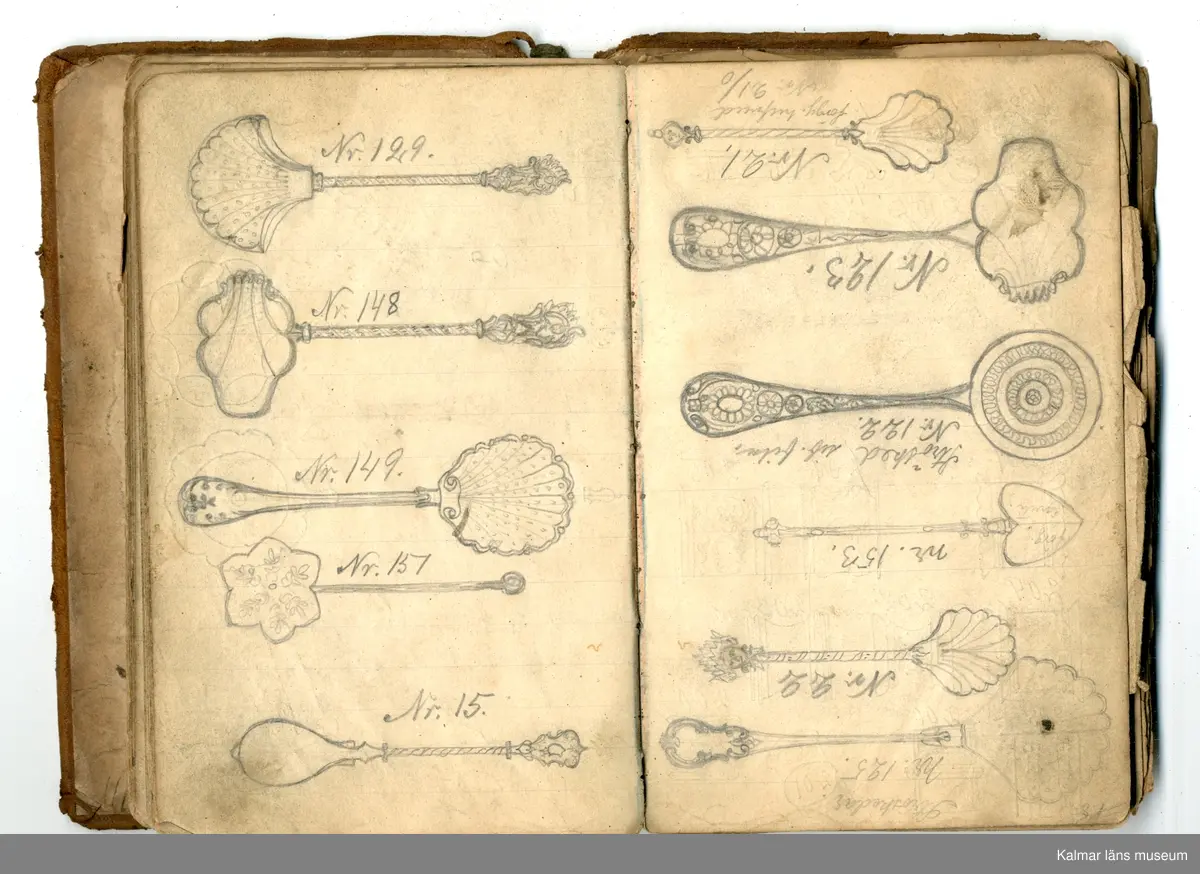 Nr. 129.
Nr. 148
Nr. 149.
Nr. 151
Nr. 15.
Nr. 21/6
Nr. 21,
Nr. 123.
Nr. 122.
Strösked
nr. 153.
Nr. 22
nr. 125.
Kalmar läns museum